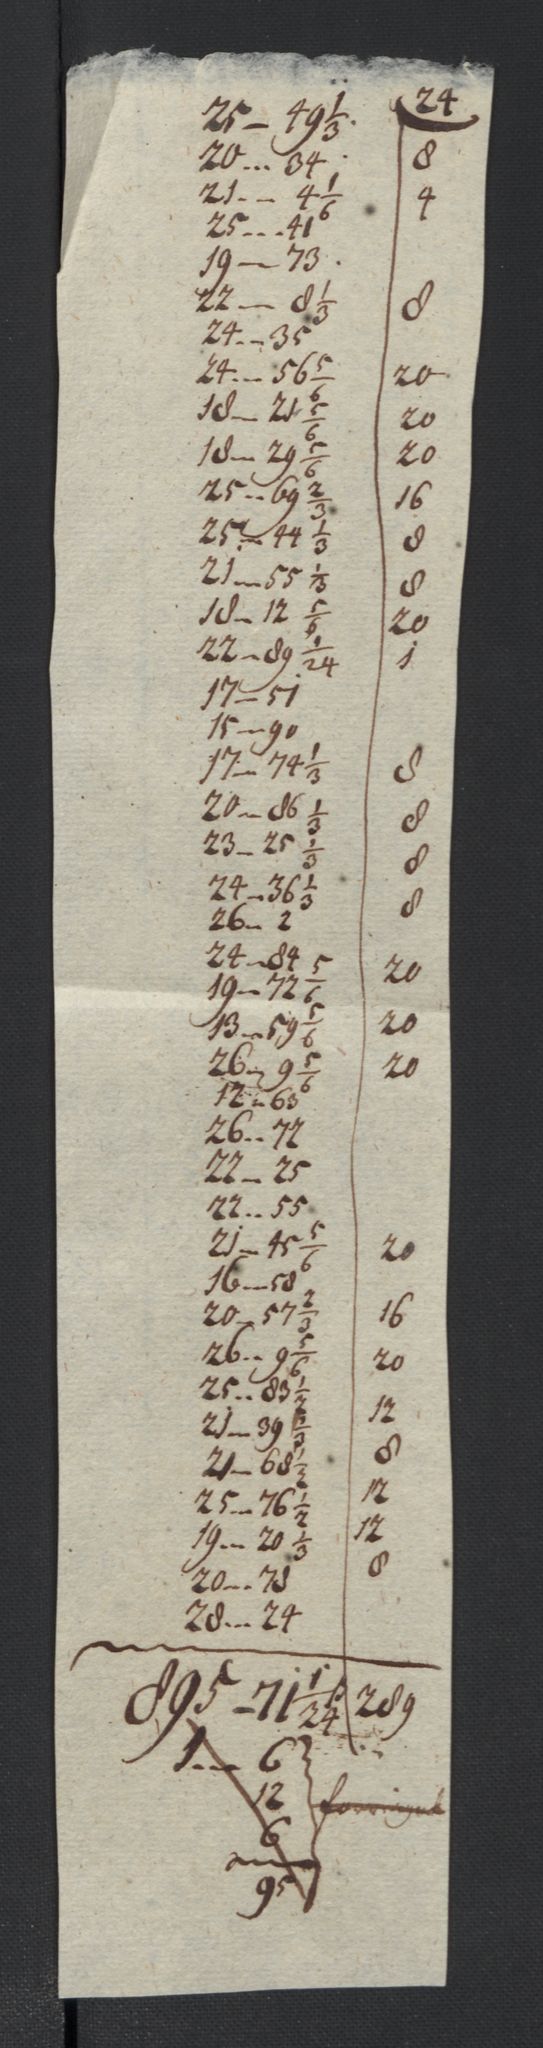 24
25 - 49 1/3 8
20 ... 34
21 ... 4 1/6 4
25 ... 41
19 - 73
22 - 8 1/3 8
24 ... 35
24 ... 56 5/6 20
18 - 21 5/6 20
18 - 29 5/6 20
25 .. 69 2/3 16
25 - 44 1/3 8
21 - 55 1/3 8
18 - 12 5/6 20
22 - 89 1/24 1
17 - 51
15 - 90
17 - 74 1/3 8
20 - 86 1/3 8
23 - 25 1/3 8
24 - 36 1/3 8
26 - 2
24 - 84
19 - 72 5/6 20
13 - 59 5/6 20
26 - 9 5/6 20
12 - 63
26 .. 72
22 - 25
22 .. 55
21 - 45 5/6 20
16 - 58
20 - 57 2/3 16
26 .. 9 5/6 20
25 .. 83 1/2 12
21 - 39 1/3 8
21 - 68 1/2 12
25 - 76 1/2 12
19 ... 20 1/3 8
20 ... 78
28 ... 24
895 - 71 1/24 289
1 ... 6
12
6
95